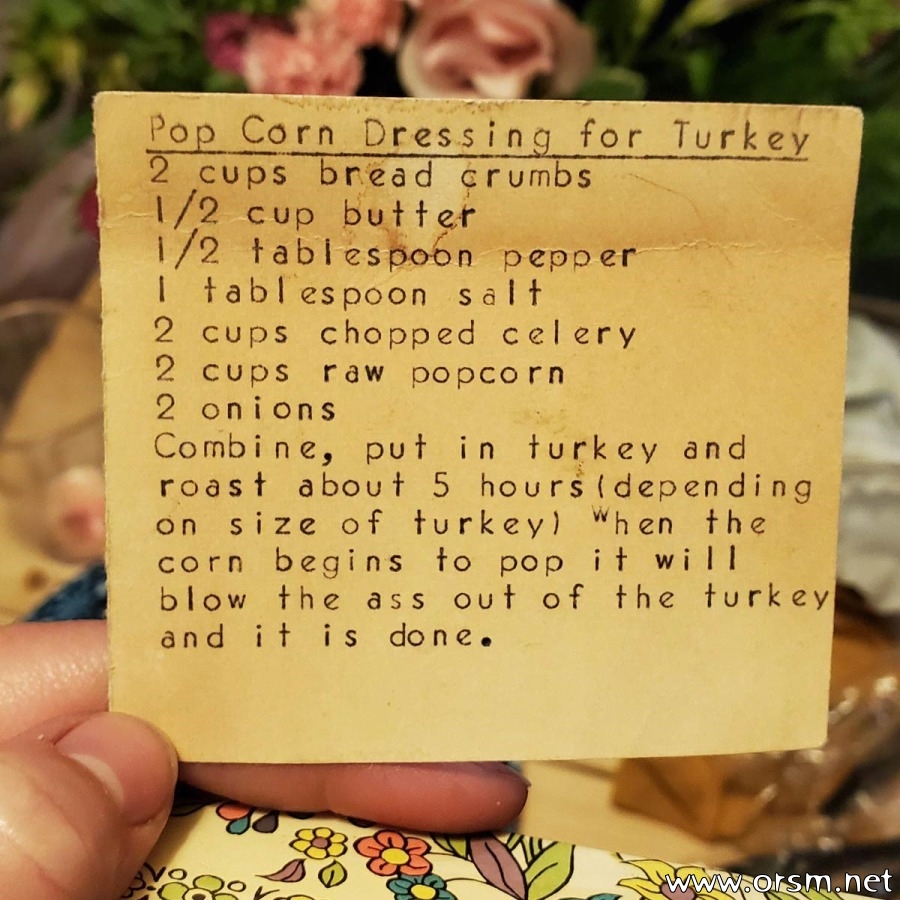 Pop Corn Dressing for Turkey
2 cups bread crumbs
1/2 cup butter
1/2 tablespoon pepper
1 tablespoon salt
2 cups chopped celery
2 cups raw popcorn
2 onions
Combine, put in turkey and
roast about 5 hours(depending
on size of turkey) When the
corn begins to pop it will
blow the ass out of the turkey
and it is done.
www.orsm.net